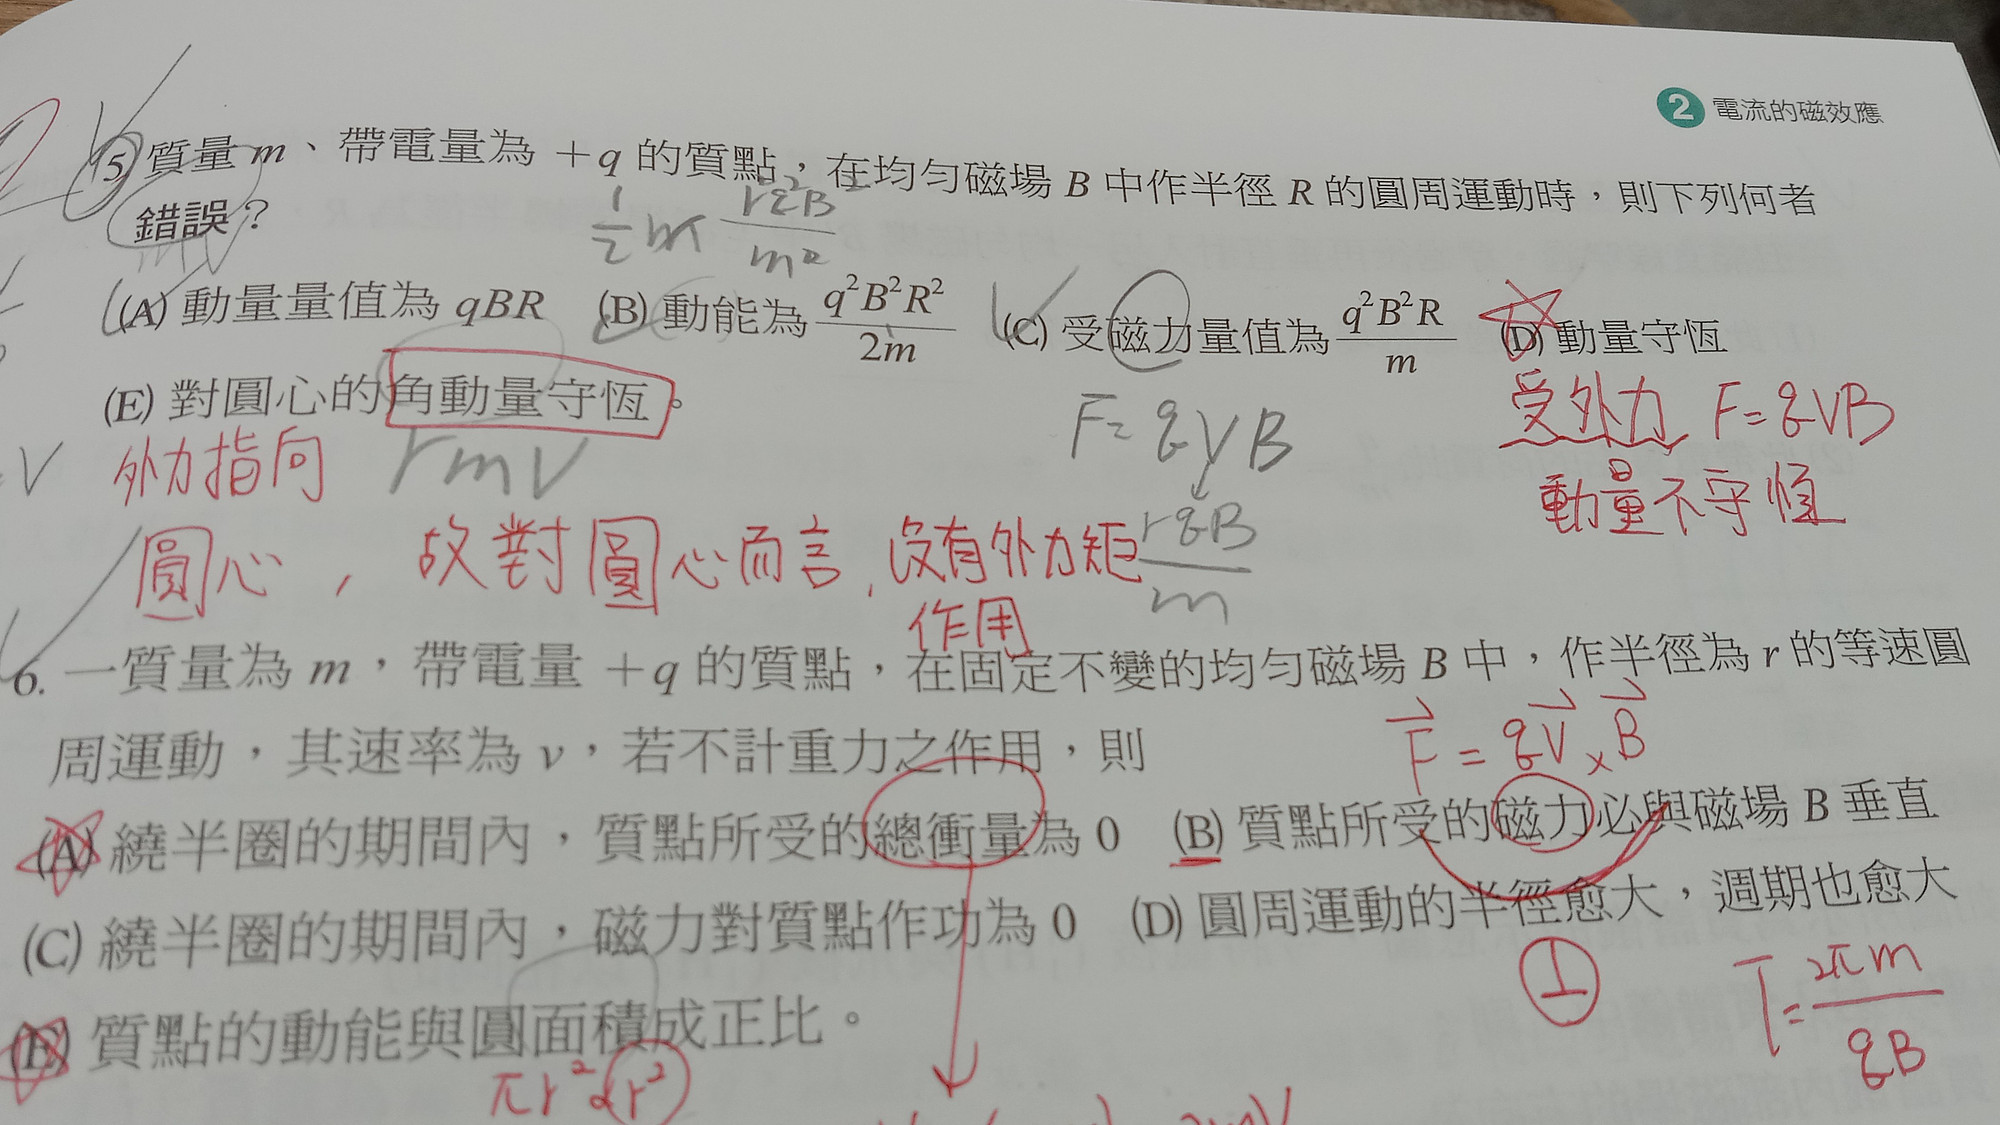 2 電流的磁效應
5. 質量 m、帶電量為 +q 的質點，在均勻磁場 B 中作半徑 R 的圓周運動時，則下列何者
錯誤？
(A) 動量量值為 qBR (B) 動能為 q²B²R²/2m (C) 受磁力量值為 q²B²R/m (D) 動量守恆
(E) 對圓心的角動量守恆。
F=qVB
受外力 F=qVB
動量不守恆
外力指向 rmv
圓心，故對圓心而言，沒有外力矩
作用
rqB/m
6. 一質量為 m，帶電量 +q 的質點，在固定不變的均勻磁場 B 中，作半徑為 r 的等速圓
周運動，其速率為 v，若不計重力之作用，則
F=qV×B
(A) 繞半圈的期間內，質點所受的總衝量為 0 (B) 質點所受的磁力必與磁場 B 垂直
(C) 繞半圈的期間內，磁力對質點作功為 0 (D) 圓周運動的半徑愈大，週期也愈大
⊥
T=2πm/qB
(E) 質點的動能與圓面積成正比。
πr²αr²